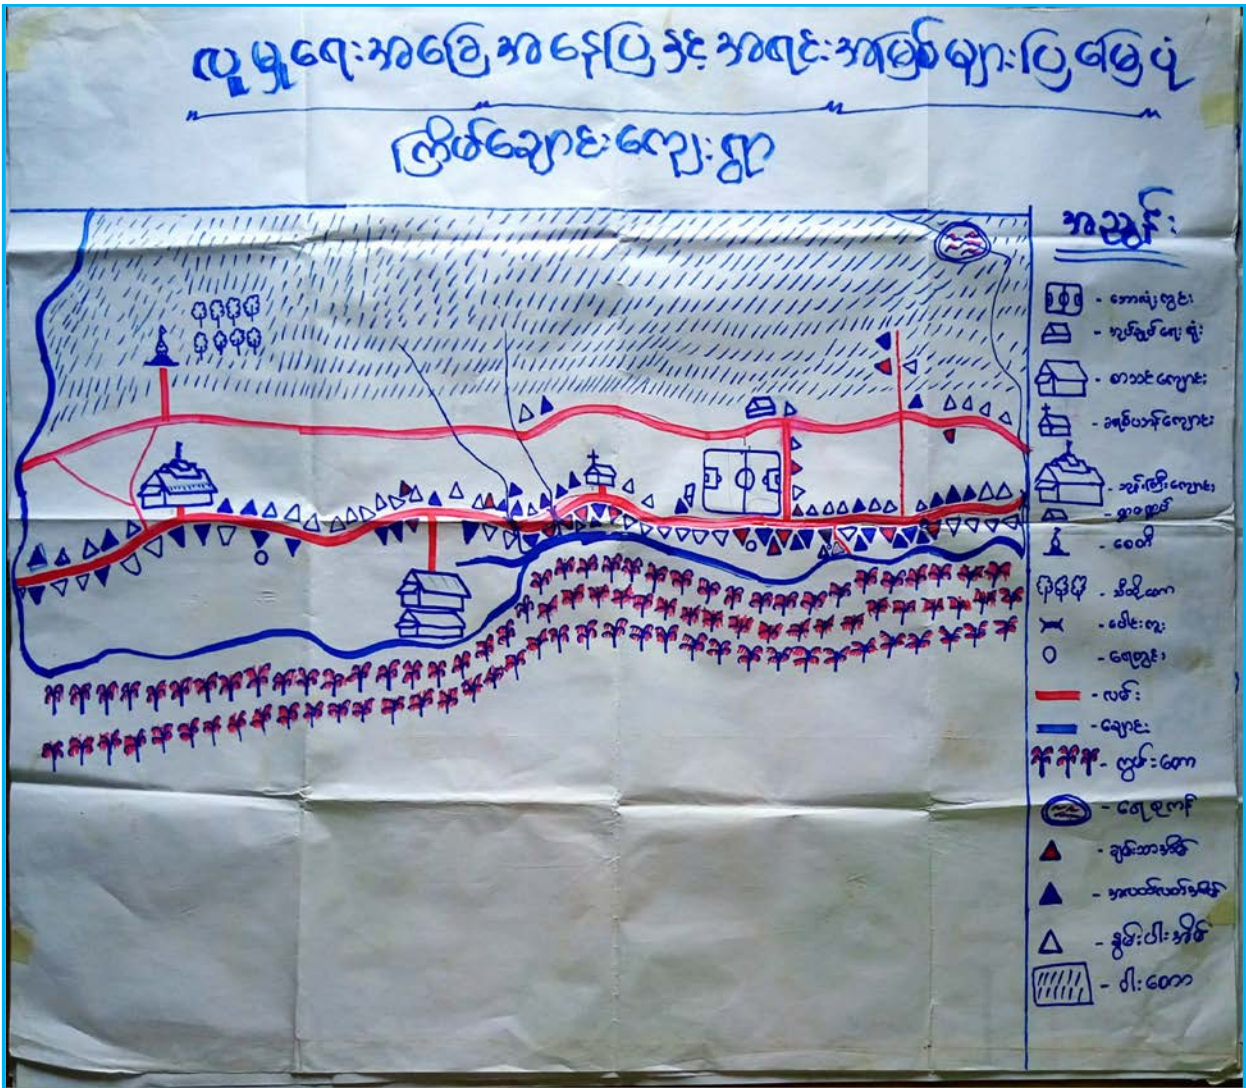 လူမှုရေးအခြေအနေပြနှင့်အရင်းအမြစ်များပြမြေပုံ
ကြိမ်ချောင်းကျေးရွာ
အညွှန်း
- ဘောလုံးကွင်း
- အုပ်ချုပ်ရေးရုံး
- စာသင်ကျောင်း
- ခရစ်ယာန်ကျောင်း
- ဘုန်းကြီးကျောင်း
- စေတီ
- သီဟိုတော
- ပေါင်းကူး
- ရေတွင်း
- လမ်း
- ချောင်း
- ကွမ်းတော
- ရေစုကန်
- ချမ်းသာအိမ်
- အလတ်လတ်အိမ်
- နွမ်းပါးအိမ်
- ဝါးတော